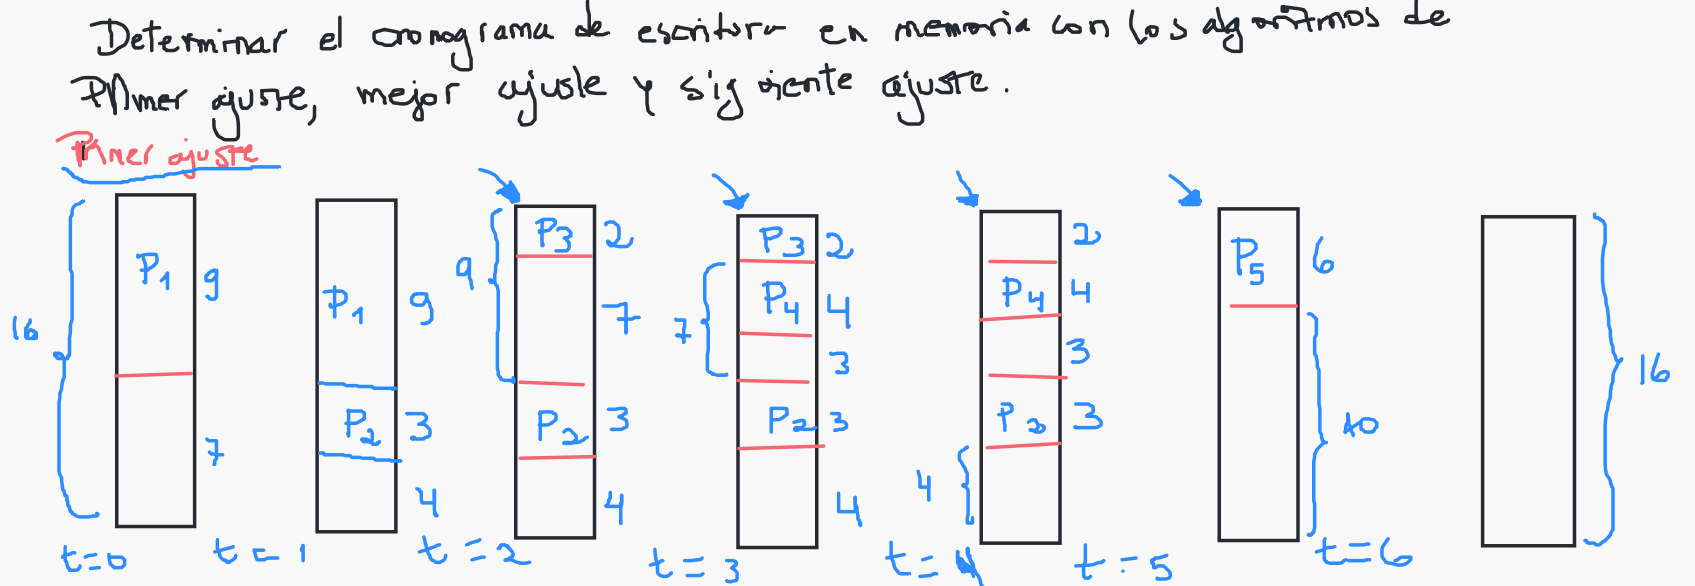 Determinar el cronograma de escritura en memoria con los algoritmos de
Primer ajuste, mejor ajuste y siguiente ajuste.
Primer ajuste
16 P1 9 7
P1 9 P2 3 4
9 P3 2 7 P2 3 4
7 P3 2 P4 4 3 P2 3 4
4 2 P4 4 3 P2 3
P5 6 10
16
t=0 t=1 t=2 t=3 t=4 t=5 t=6